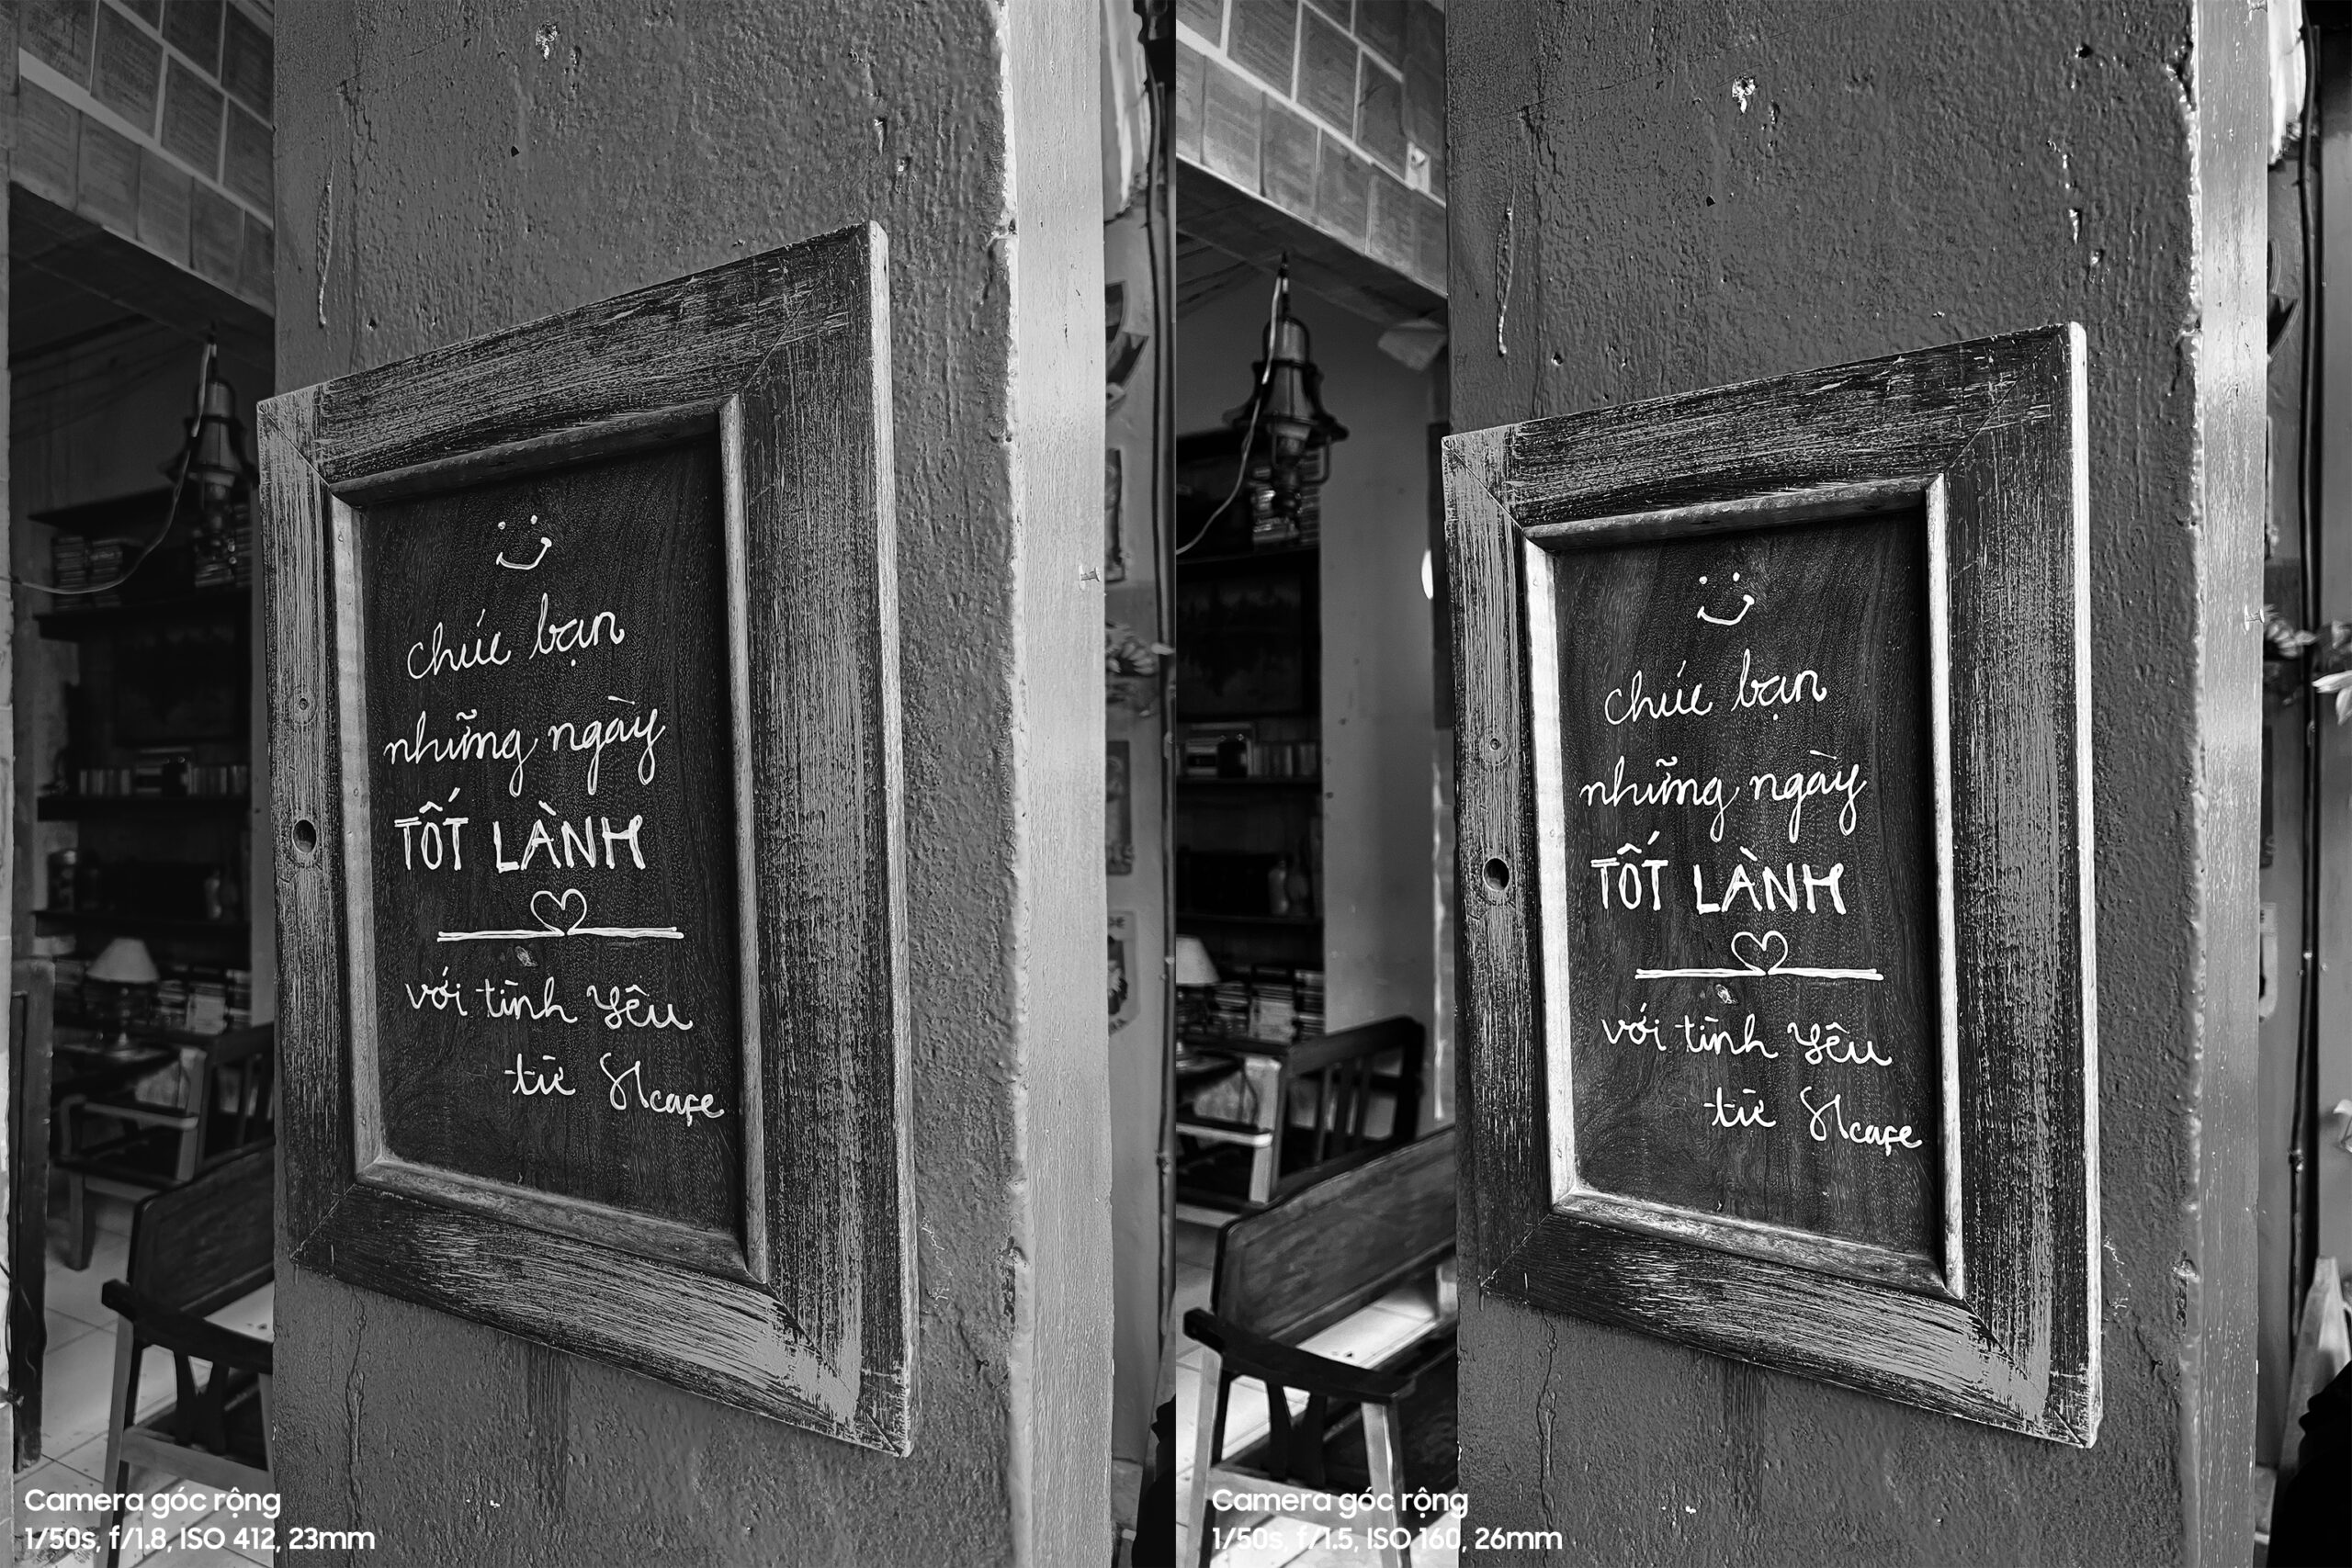 chúc bạn
những ngày
TỐT LÀNH
với tình yêu
từ SLcafe
Camera góc rộng
1/50s, f/1.8, ISO 412, 23mm
chúc bạn
những ngày
TỐT LÀNH
với tình yêu
từ SLcafe
Camera góc rộng
1/50s, f/1.5, ISO 160, 26mm